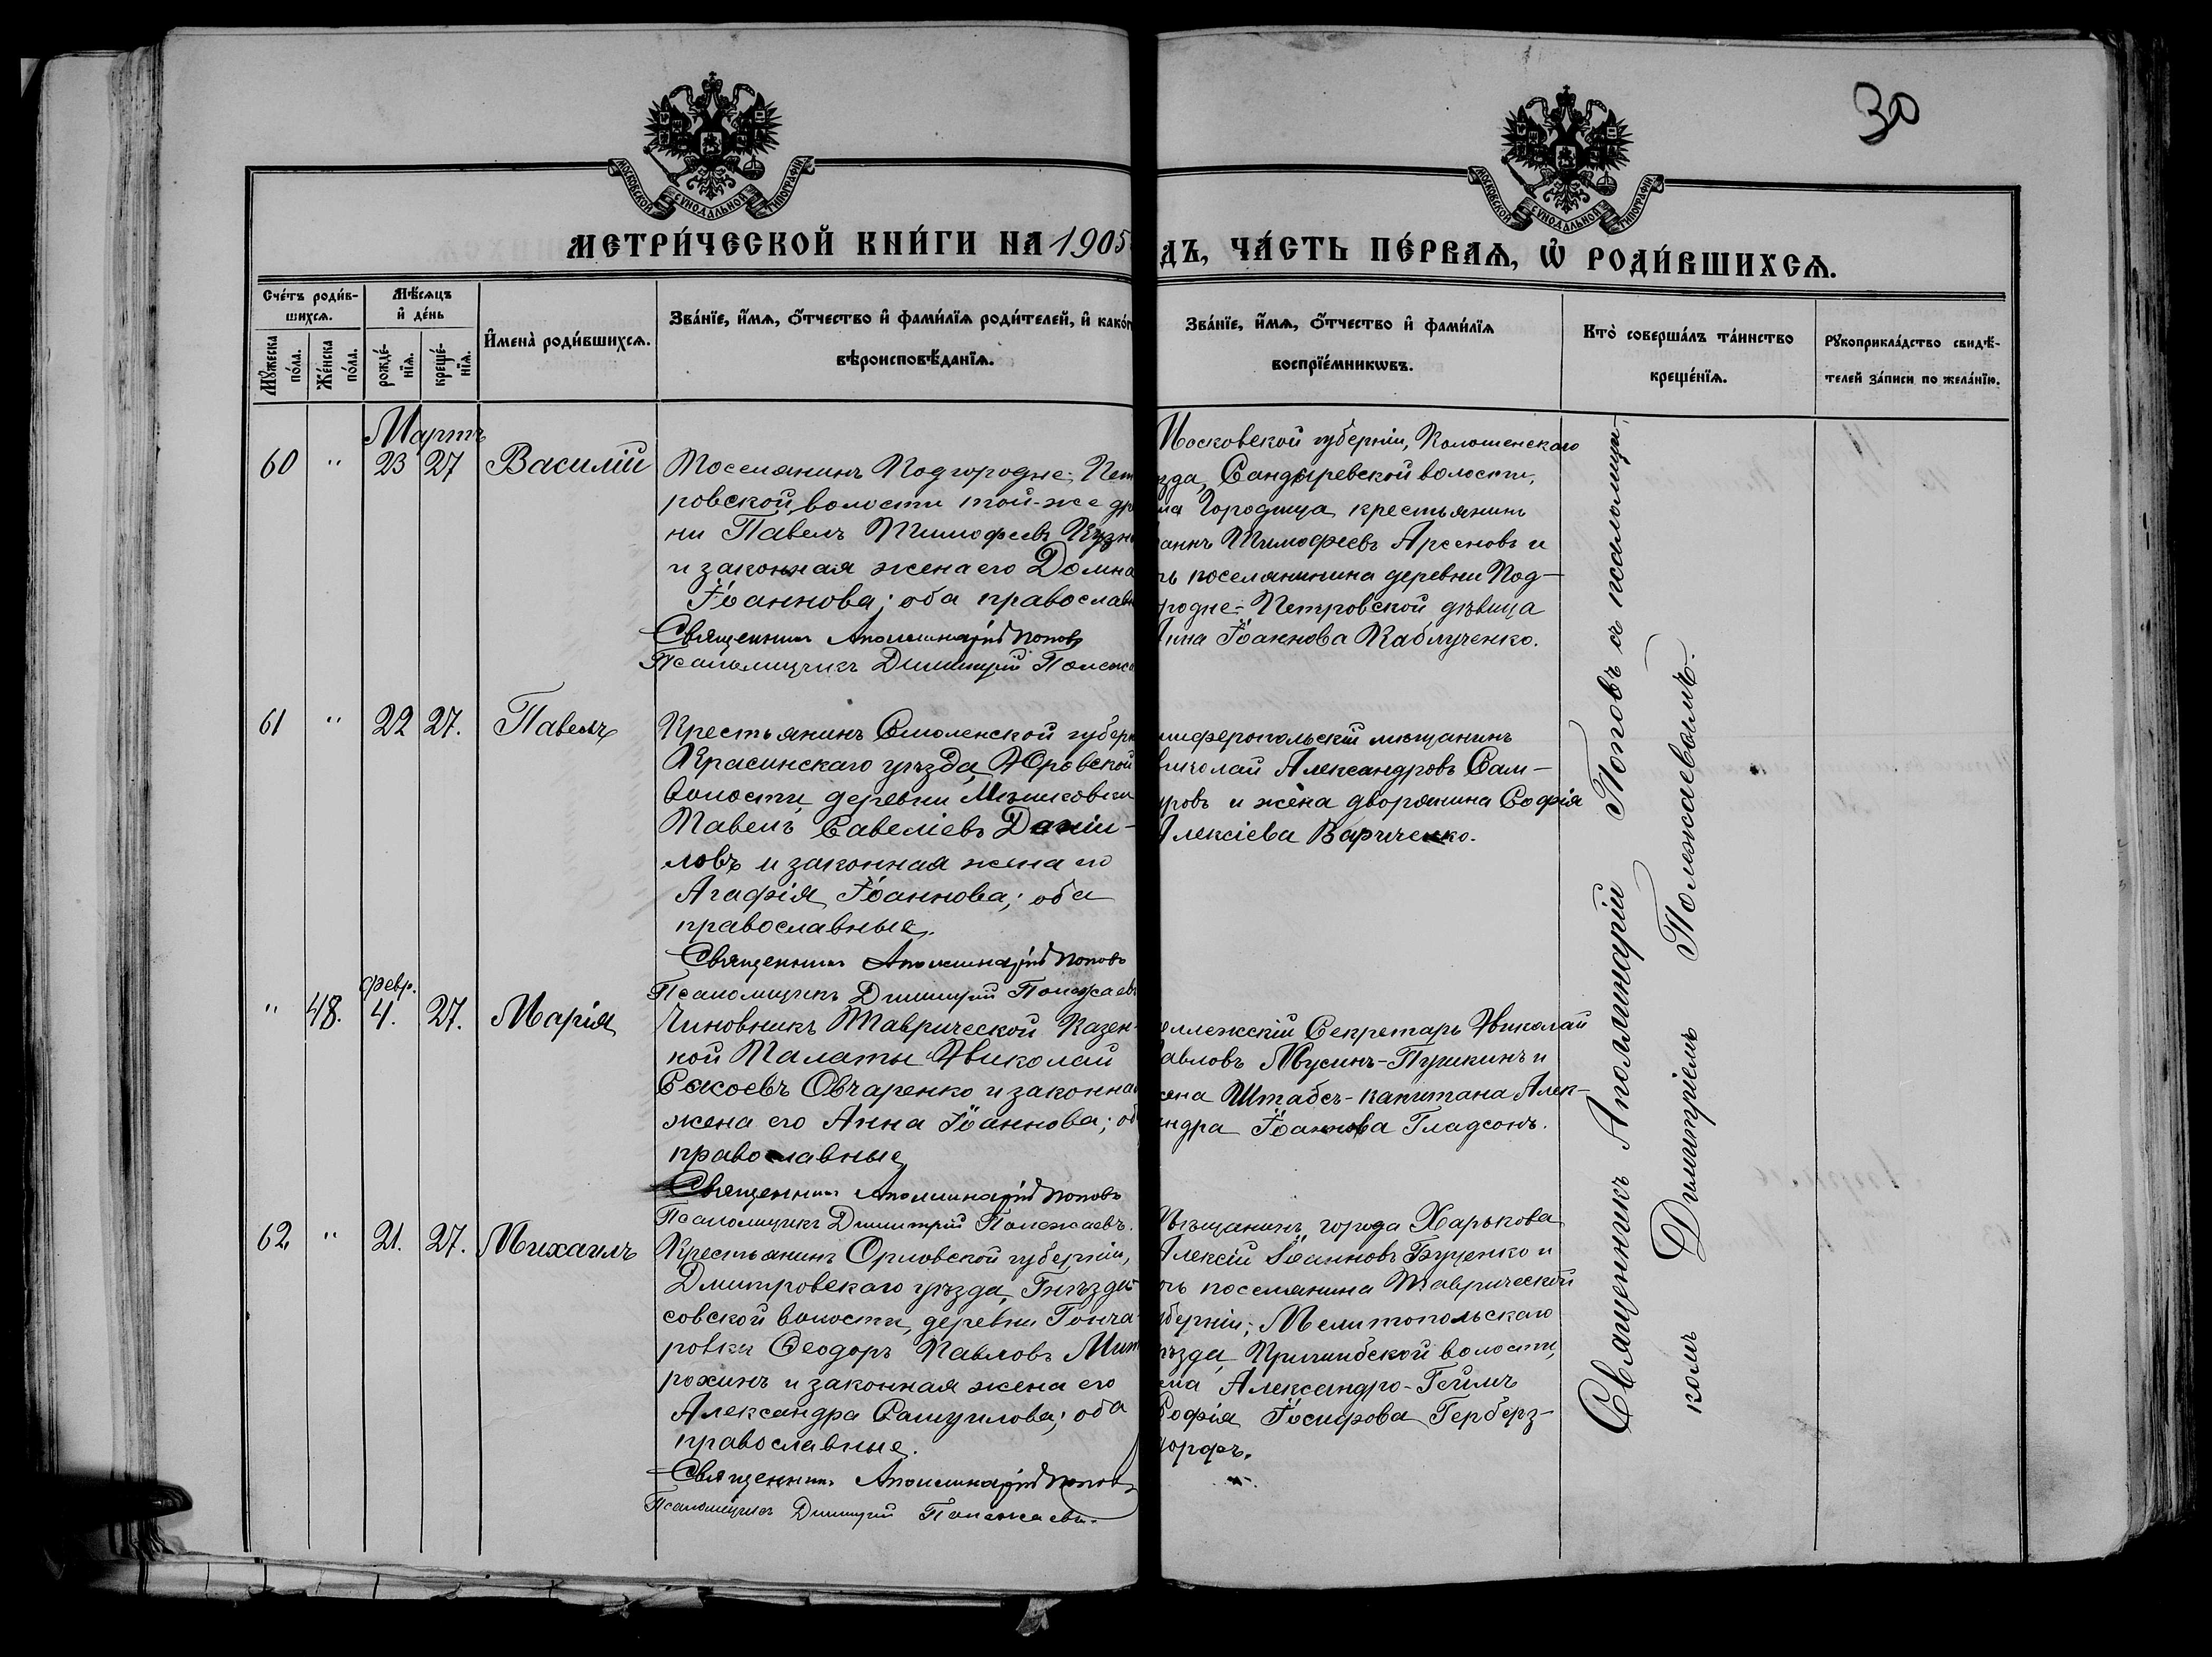 30
МОСКОВСКОЙ СѴНОДАЛЬНОЙ ТИПОГРАФІИ
МОСКОВСКОЙ СѴНОДАЛЬНОЙ ТИПОГРАФІИ
МЕТРИ́ЧЕСКОЙ КНИ́ГИ НА 1905
ДЪ, ЧА́СТЬ ПЕ́РВАѦ, Ѡ҆ РОДИ́ВШИХСѦ.
Сче́тъ роди́в-
шихсѧ.
Мꙋ́жеска по́ла.
Же́нска по́ла.
Мѣ́сѧцъ
и҆ де́нь
рожде́-
нїѧ.
креще́-
нїѧ.
И҆мена̀ роди́вшихсѧ.
Зва́нїе, и҆́мѧ, ѻ҆́тчество и҆ фами́лїѧ роди́телей, и҆ како́г
вѣроисповѣ́данїѧ.
Зва́нїе, и҆́мѧ, ѻ҆́тчество и҆ фами́лїѧ
воспрїе́мникѡвъ.
Кто̀ соверша́лъ та́инство
креще́нїѧ.
Рꙋкоприкла́дство свидѣ́-
телей за́писи по жела́нїю.
Мартъ
60 " 23 27 Василій
Поселянинъ Подгородне-Пет
ровской волости той-же др
ни Павелъ Тимофеевъ Кузн
и законная жена его Домна
Іоаннова; оба православн
Священникъ Аполлинарій Поповъ
Псаломщикъ Димитрій Полежа
Московской губерніи, Коломенскаго
зда, Сандыревской волости,
ла Городища, крестьянинъ
аннъ Тимофеевъ Арсеновъ и
чь поселянина деревни Под-
родне-Петровской дѣвица
нна Іоаннова Каблученко.
61 " 22 27. Павелъ
Крестьянинъ Смоленской губерн
Красинскаго уѣзда, Юровской
волости, деревни
Павелъ Савеліевъ Даніи-
ловъ и законная жена его
Агафія Іоаннова; оба
православные.
Священникъ Аполлинарій Поповъ
Псаломщикъ Димитрій Полежаевъ
мферопольскій мѣщанинъ
Николай Александровъ Сам-
уровъ и жена дворянина Софія
Алексіева Вариченко.
февр.
" 48. 4. 27. Марія
Чиновникъ Таврической Казен-
ной Палаты Николай
Сысоевъ Овчаренко и законная
жена его Анна Іоаннова; об
православные
Священникъ Аполлинарій Поповъ
Псаломщикъ Димитрій Полежаевъ.
оллежскій Секретарь Николай
авловъ Мусинъ-Пушкинъ и
ена Штабсъ-капитана Алек-
ндра Іоаннова Гладсонъ.
62. " 21. 27. Михаилъ
Крестьянинъ Орловской губерніи,
Дмитровскаго уѣзда,
совской волости, деревни Гонча-
ровки Ѳеодоръ Павловъ Мит
рохинъ и законная жена его
Александра Самуилова; оба
православные.
Священникъ Аполлинарій Поповъ
Псаломщикъ Димитрій Полежаевъ.
Мѣщанинъ города Харькова
Алексій Іоанновъ Буценко и
чь поселянина Таврической
берніи, Мелитопольскаго
ѣзда, Пришибской волости,
ла Александро-Геймъ
Софія Іосифова Герберз-
дорфъ.
Священникъ Аполлинарій Поповъ съ псаломщи-
комъ Димитріемъ Полежаевымъ.